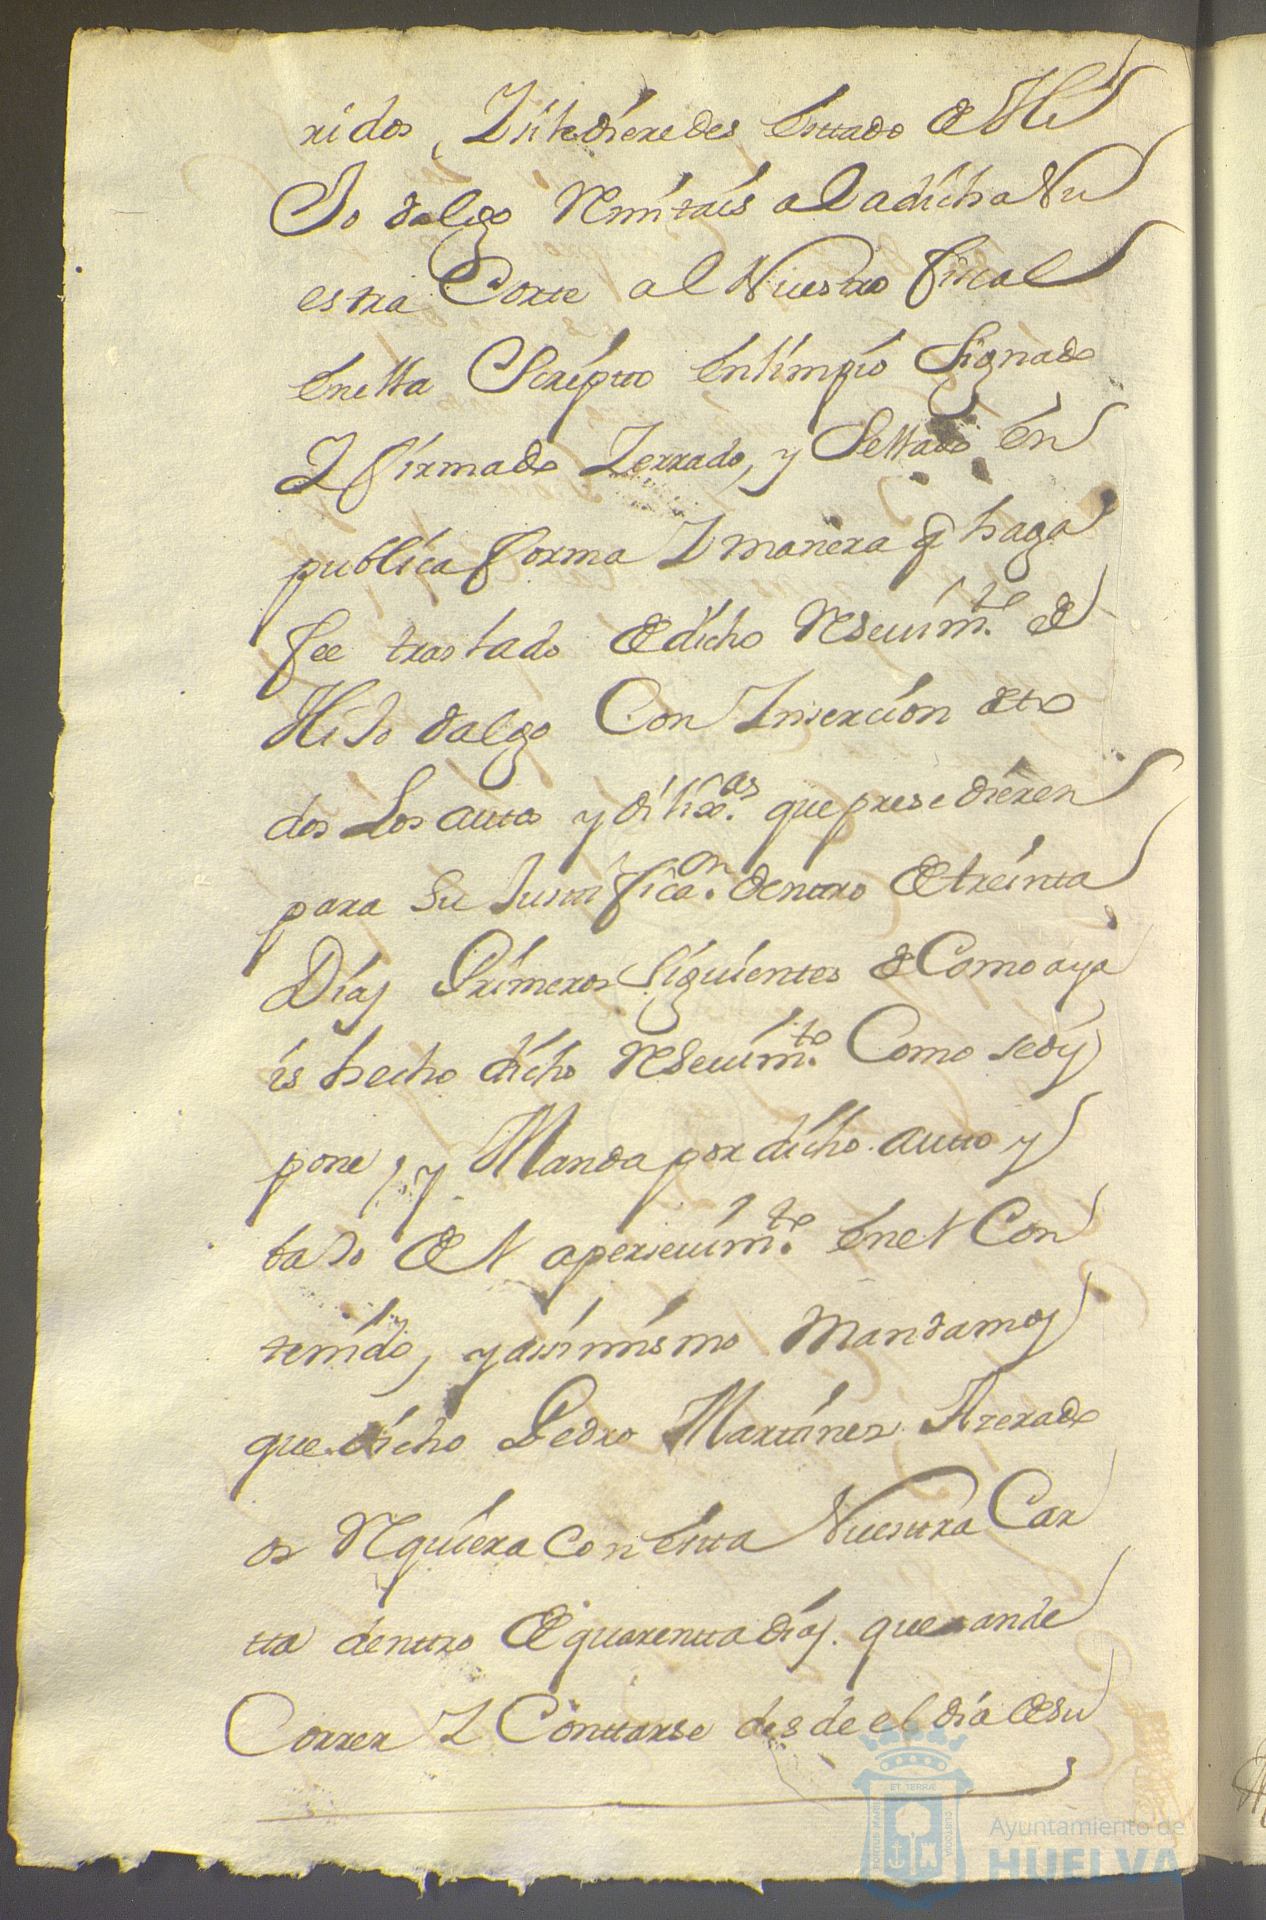 ridos, Zi le dieredes Esttado de Hi
Jo dalgo Remitais a la dicha Nu
estra Corte al Nuestro fiscal
en ella Scripto en limpio Signado
Z firmado Zerrado, y Sellado en
publica forma Z manera q haga
fee traslado de dicho Resevim.to de
HiJo dalgo Con Zinsercion de to
dos Los auttos y dilix.as que presedieren
para su Justtificaz.on denttro de treinta
Dias Primeros Siguientes de Como aya
is hecho dicho Resevim.to Como se dis
pone, y Manda por dicho autto y
baJo del apersevim.to en el Con
tenido, y assimismo Mandamos
que dicho Pedro Martines
os Requiera con Estta Nuesttra Car
tta denttro de quarentta dias. que an de
Correr Z Conttarse desde el dia de su
Ayuntamiento de
HUELVA